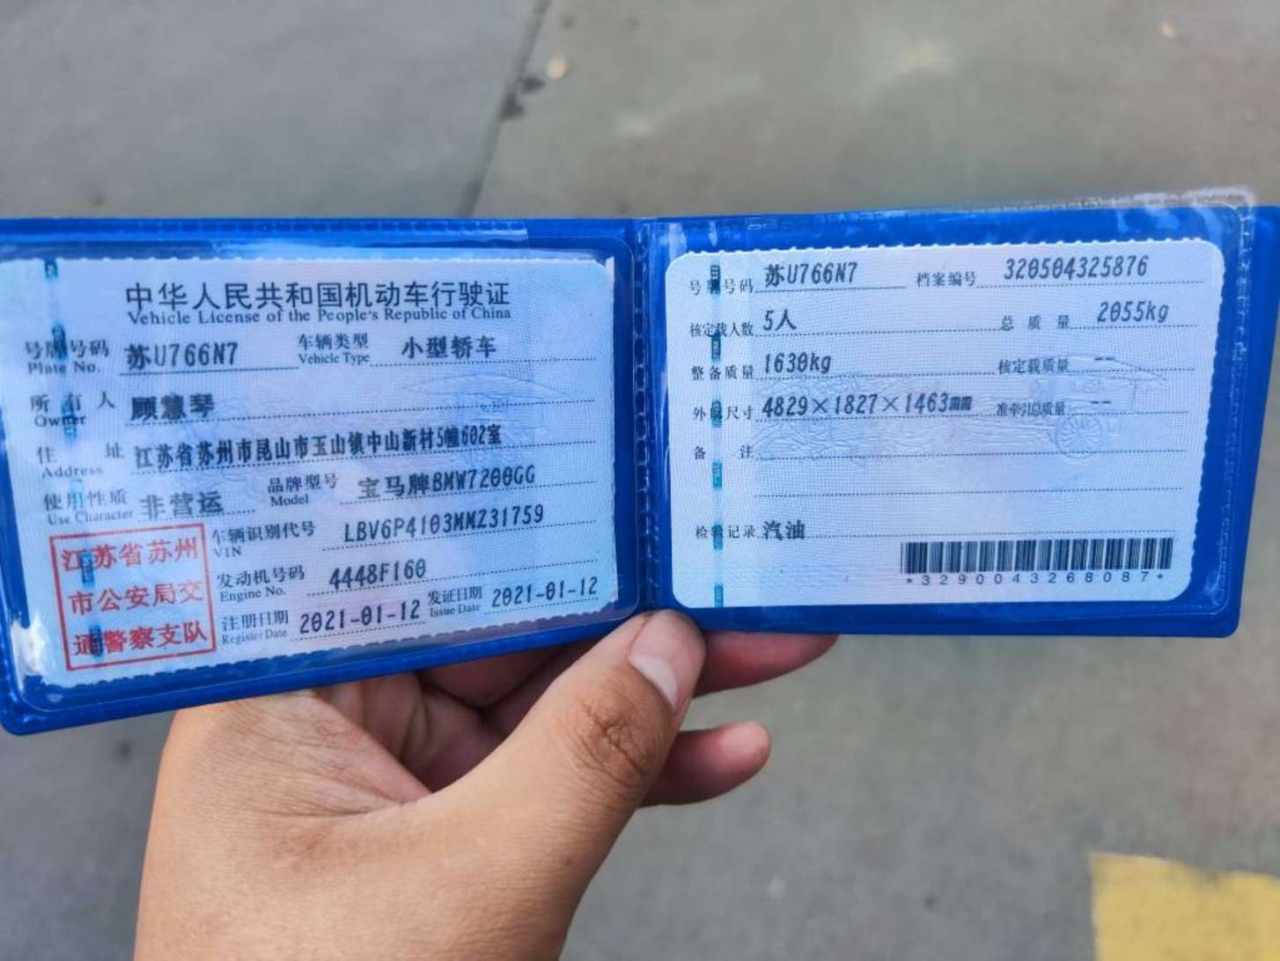 中华人民共和国机动车行驶证
Vehicle License of the People's Republic of China
号牌号码 苏U766N7 车辆类型 小型轿车
Plate No. Vehicle Type
所有人 顾慧琴
Owner
住址 江苏省苏州市昆山市玉山镇中山新村5幢602室
Address
使用性质 非营运 品牌型号 宝马牌BMW7200GG
Use Character Model
车辆识别代号 LBV6P4103MMZ31759
VIN
发动机号码 4448F160
Engine No.
注册日期 2021-01-12 发证日期 2021-01-12
Register Date Issue Date
江苏省苏州
市公安局交
通警察支队
号牌号码 苏U766N7 档案编号 320504325876
核定载人数 5人 总质量 2055kg
整备质量 1630kg 核定载质量 --
外廓尺寸 4829×1827×1463mm 准牵引总质量 --
备注
检验记录 汽油
*3290043268087*